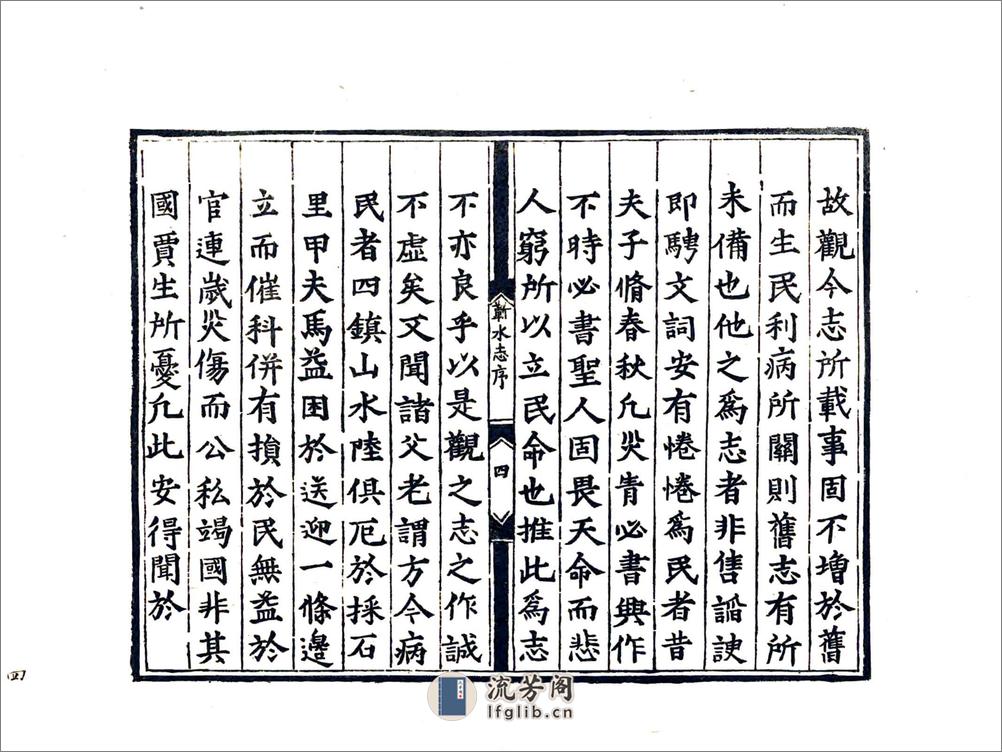 故觀今志所載事固不增於舊
而生民利病所關則舊志有所
未備也他之爲志者非售謟諛
即騁文詞安有惓惓爲民者昔
夫子脩春秋凢灾眚必書興作
不時必書聖人固畏天命而悲
人窮所以立民命也推此爲志
蘄水志序
四
不亦良乎以是觀之志之作誠
不虛矣又聞諸父老謂方今病
民者四鎮山水陸俱厄於採石
里甲夫馬益困於送迎一條邊
立而催科併有損於民無益於
官連歲灾傷而公私竭國非其
國賈生所憂凢此安得聞於
四
流芳阁
lfglib.cn